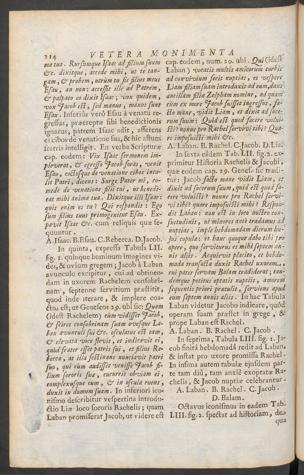 214
VETERA MONIMENTA
mea tua. Rursumque Isaac ad filium suum
&c. dixitque, accede mihi, ut te tan-
gam, & probem, utrum tu sis filius meus
Esau, an non: accessit ille ad Patrem,
& palpato eo dixit Isaac; vox quidem,
vox Jacob est, sed manus, manus sunt
Esau. Inferiùs verò Esau à venatu re-
gressus, præreptæ sibi benedictionis
ignarus, patrem Isaac adit, assistens
ei cibos de venatione sui, & hic astuti
sceris intelligit. En verba Scripturæ
cap. eodem: Vix Isaac sermonem im-
pleverat, & egresso Jacob foras, venit
Esau, coctosque de venatione cibos intu-
lit Patri, dicens: Surge Pater mi, co-
mede de venatione filii tui, ut benedi-
cat mihi anima tua. Dixitque illi Isaac:
quis enim es tu? Qui respondit: Ego
sum filius tuus primogenitus Esau. Ex-
pavit Isaac &c. cum reliquis quæ se-
quuntur.
A. Isaac. B. Esau. C. Rebecca. D. Jacob.
In quinta, expressa Tabula LII.
fig. 1. quinque hominum imagines vi-
des, & ovium gregem; Jacob à Laban
avunculo excipitur, cui ad obtinen-
dam in uxorem Rachelem consobri-
nam, septenne servitium præstitit,
quod inde iterare, & implere coa-
ctus est; ut Genes. cap. 29. ubi sic: Quam
(idest Rachelem) cùm vidisset Jacob,
& sciret consobrinam suam ovesque La-
ban avunculi sui &c. osculatus est eam,
& elevata voce flevit, et indicavit ei,
quòd frater esset patris sui, et filius Re-
becca, at illa festinans nunciavit patri
suo, qui cùm audisset venisse Jacob fi-
lium sororis suæ, cucurrit obviam ei,
complexusque eum, & in oscula ruens,
duxit in domum suam. In inferiori icu-
nismo describitur vespertina introdu-
ctio Liæ loco sororis Rachelis; quam
Laban promiserat Jacob, ut videre est
cap. eodem, num. 20. ubi. Qui (idest
Laban) vocatis multis amicorum turbis
ad convivium fecit nuptias, et vespere
Liam filiam suam introduxit ad eum, dans
ancillam filiæ Zelpham nomine, ad quam
cùm ex more Jacob fuisset ingressus, fa-
cto mane, vidit Liam, et dixit ad soce-
rum suum: Quid est quod facere volui-
sti? nonne pro Rachel servivi tibi? Qua-
re imposuisti mihi &c.
A. Laban. B. Rachel. C. Jacob. D. Lia.
In sexta ejdem Tab. LII. fig. 2. ex-
primitur Historia Rachelis & Jacobi,
quæ eodem cap. 29. Genes. sic nuda-
tur: Jacob facto mane vidit Liam, et
dixit ad socerum suum, quid est quod fa-
cere voluisti? nonne pro Rachel servi-
vi tibi? quare imposuisti mihi? Respon-
dit Laban: non est in loco nostro con-
suetudinis, ut minores antè tradamus ad
nuptias, imple hebdomadam dierum hu-
jus copulæ: et hanc quoque dabo tibi pro
opere, quo serviturus es mihi septem an-
nis aliis. Acquievit placito, et hebdo-
mada transacta duxit Rachel uxorem,
cui pater servam Balam tradiderat; tan-
demque potitus optatis nuptiis, amorem
sequentis priori prætulit, serviens apud
eum septem annis aliis. In hac Tabula
Laban videtur Jacobo indicare, quòd
operam suam præstet in grege, &
prope Laban est Rachel.
A. Laban. B. Rachel. C. Jacob.
In septima, Tabula LIII. fig. 1. Ja-
cob finitâ hebdomadâ redit ad Laban,
& instat pro uxore promissa Rachel.
In infima autem tabulæ ejusdem par-
te tam diu, tam anxiè exoptatæ Ra-
chelis, & Jacob nuptiæ celebrantur.
A. Laban. B. Rachel. C. Jacob.
D. Balam.
Octavus iconismus in eadem Tab.
LIII. fig. 2. spectat ad historiam, de
qua